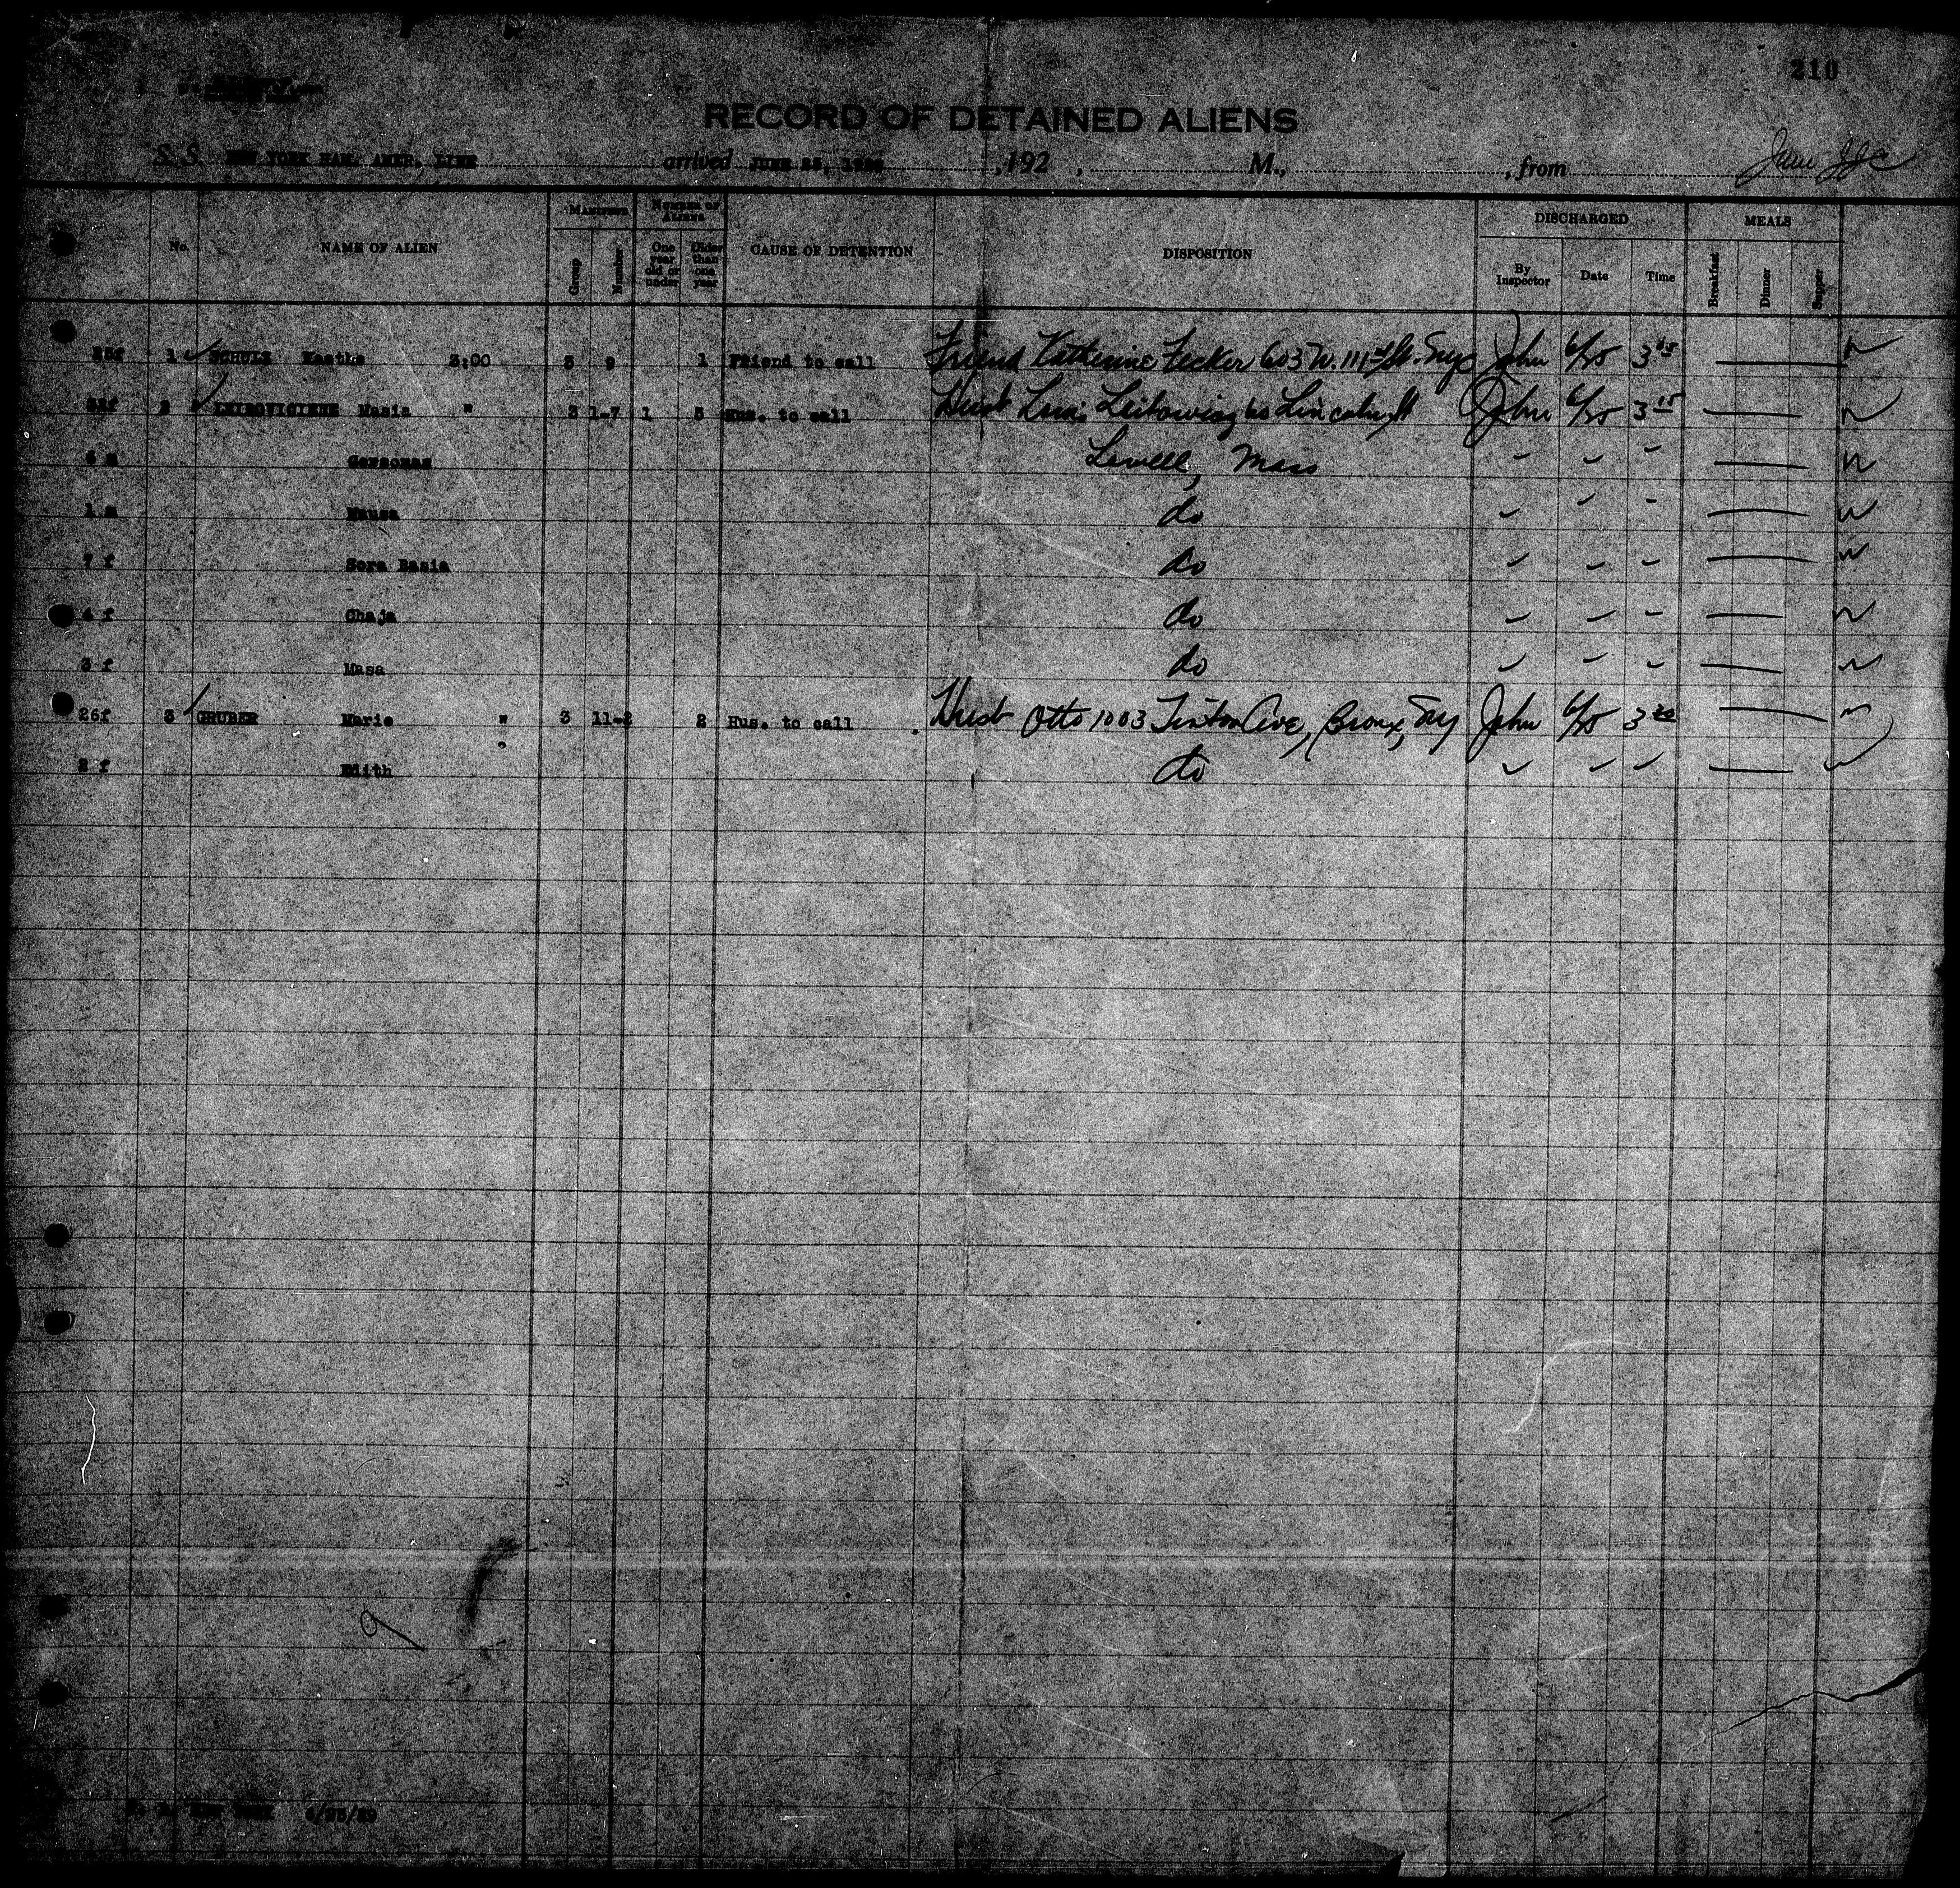 210
RECORD OF DETAINED ALIENS
S. S. NEW YORK HAM. AMER. LINE arrived JUNE 25, 192 , M., , from
No. NAME OF ALIEN MANIFEST Group Number NUMBER OF ALIENS One year old or under Older than one year CAUSE OF DETENTION DISPOSITION DISCHARGED By Inspector Date Time MEALS Breakfast Dinner Supper
1 SCHULZ 3:00 3 9 1 Friend to call Friend Katherine Fecker 603 W. 111th St. NYC John 6/25 3 15
2 LEIBOVICIENE Masia " 3 1-7 1 5 Hus. to call Husb Leibowicz 60 Lincoln St John 6/25 3 15
Lowell, Mass
1 m do
7 f Sora Basia do
4 f Chaja do
3 f Masa do
26f 3 GRUBER Marie " 3 11-2 2 Hus. to call Husb Otto 1003 Tinton Ave, Bronx, NY John 6/25 3 20
2 f Edith do
9
New York 6/25/29